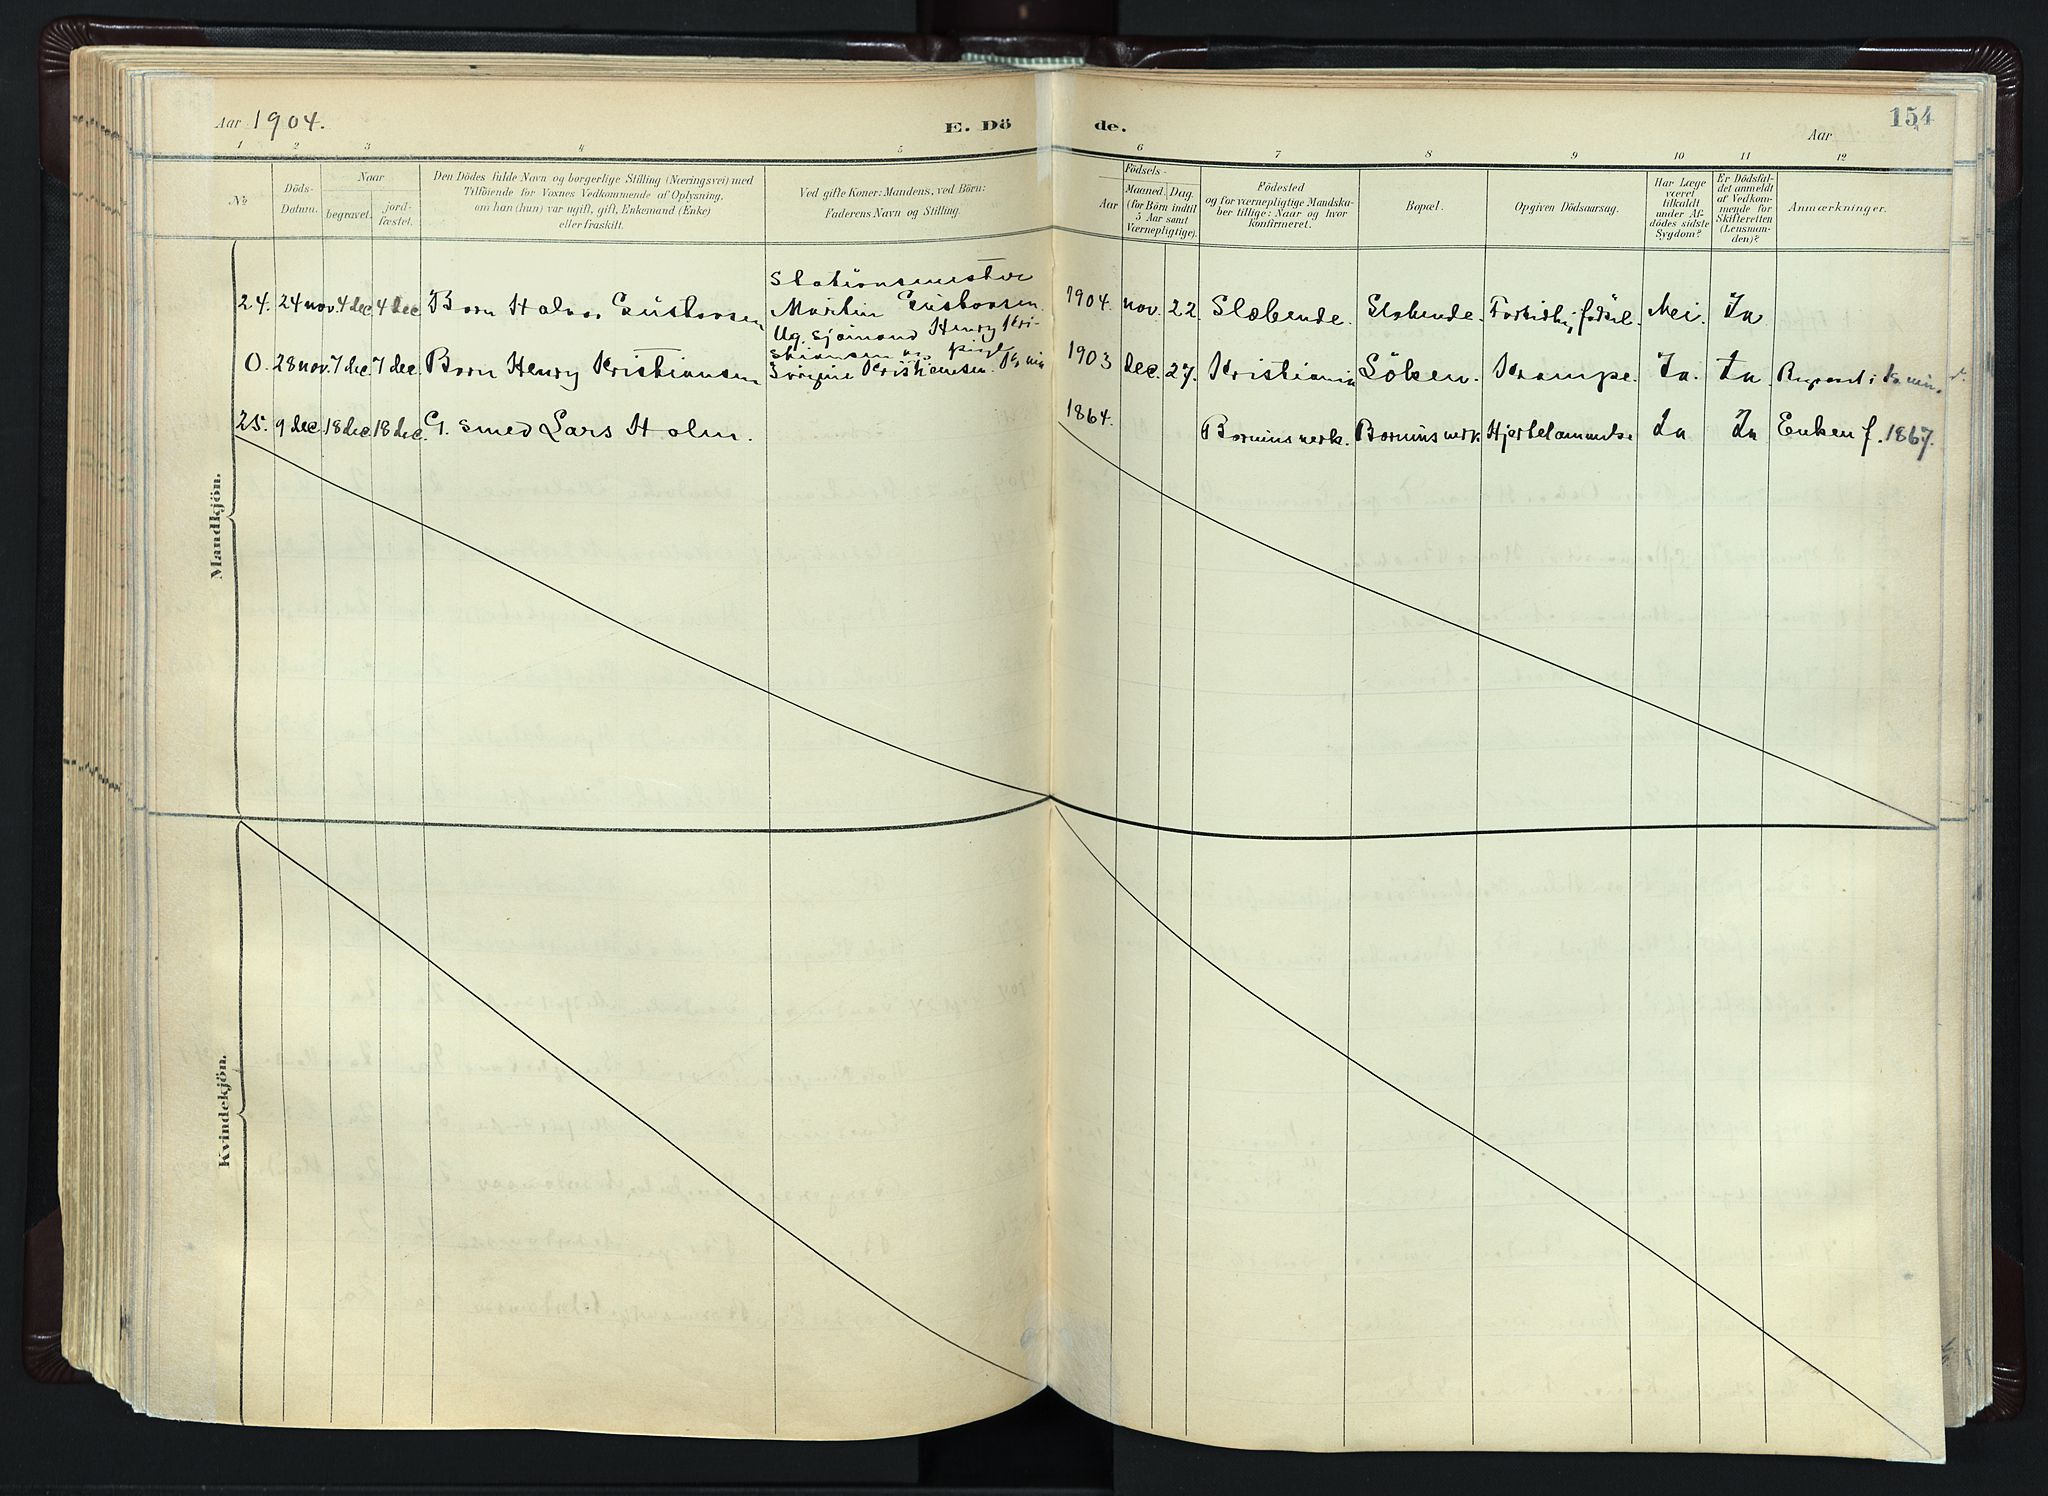 Aar 1904.
E. Dö
de.
Aar
154
1 2 3 4 5 6 7 8 9 10 11 12
No
Döds-
Datum.
Naar
begravet.
jord-
fæstet.
Den Dödes fulde Navn og borgerlige Stilling (Næringsvei) med
Tilföiende for Voxnes Vedkommende af Oplysning,
om han (hun) var ugift, gift, Enkemand (Enke)
eller fraskilt.
Ved gifte Koner: Mandens, ved Börn:
Faderens Navn og Stilling.
Födsels-
Aar
Maaned. Dag.
(for Börn indtil
5 Aar samt
Værnepligtige).
Födested
og for værnepligtige Mandska-
ber tillige: Naar og hvor
konfirmeret.
Bopæl.
Opgiven Dödsaarsag.
Har Læge
været
tilkaldt
under Af-
dödes sidste
Sygdom?
Er Dödsfal-
det anmeldt
af Vedkom-
mende for
Skifteretten
(Lensman-
den)?
Anmærkninger.
Mandkjön.
24. 24 nov. 4 dec 4 dec Barn Halvor Gustavsen
Stationsmester
Martin Gustavsen.
1904. nov. 22. Slæbende. Slæbende. fødsel. Nei. Ja
0. 28 nov. 7 dec 7 dec. Barn Henry Kristiansen
Ug. sjømand Henry Kri-
stiansen og pige
Kristiansen.
1903 dec. 27. Kristiania Söken. Krampe. Ja. Ja
25. 9 dec 18 dec 18 dec. G. smed Lars Holm.
1864. Ja Ja Enken f. 1867.
Kvindekjön.